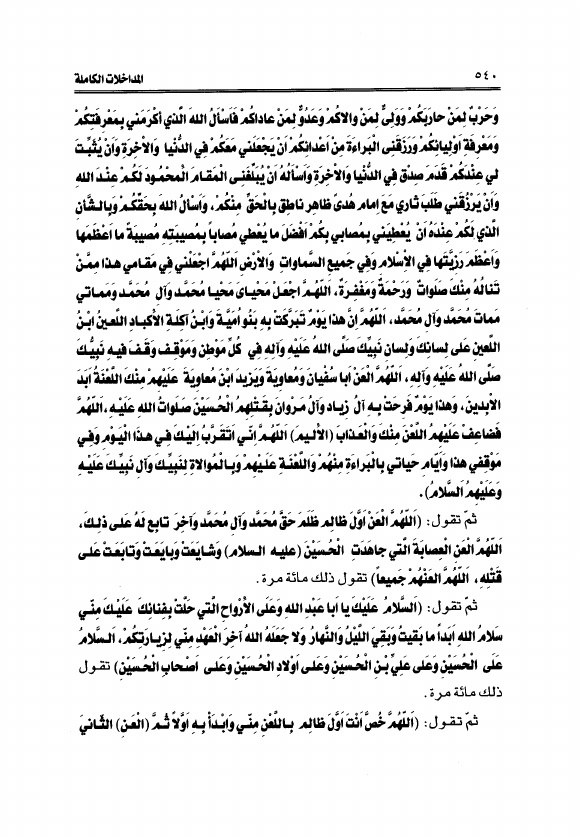 ٥٤٠ المداخلات الكاملة
وَحَرْبٌ لِمَنْ حارَبَكُمْ وَوَلِيٌّ لِمَنْ والاكُمْ وَعَدُوٌّ لِمَنْ عاداكُمْ فَأسألُ اللهَ الَّذي أكْرَمَني بِمَعْرِفَتِكُمْ
وَمَعْرِفَةِ أوْلِيائِكُمْ وَرَزَقَنى الْبَراءَةَ مِنْ أعْدائِكُمْ أنْ يَجْعَلَني مَعَكُمْ في الدُّنْيا وَالآخِرَةِ وَأنْ يُثَبِّتَ
لي عِنْدَكُمْ قَدَمَ صِدْق في الدُّنْيا وَالآخِرَةِ وَأسْألُهُ أنْ يُبَلِّغَنى الْمَقامَ الْمَحْمُودَ لَكُمْ عِنْدَ اللهِ
وَأنْ يَرْزُقَني طَلَبَ ثاري مَعَ إمام هُدىً ظاهِر ناطِق بِالْحَقِّ مِنْكُمْ، وَأسْالُ اللهَ بِحَقِّكُمْ وَبِالشَّانِ
الَّذي لَكُمْ عِنْدَهُ أنْ يُعْطِيَني بِمُصابي بِكُمْ أفْضَلَ ما يُعْطي مُصاباً بِمُصيبَتِهِ مُصيبَةً ما أعْظَمَها
وَأعْظَمَ رَزِيَّتَها في الأسْلامِ وَفي جَميعِ السَّماواتِ وَالأرْضِ اَللّهُمَّ اجْعَلْني في مَقامي هذا مِمَّنْ
تَنالُهُ مِنْكَ صَلَواتٌ وَرَحْمَةٌ وَمَغْفِرَةٌ، اَللّهُمَّ اجْعَلْ مَحْيايَ مَحْيا مُحَمَّد وَآلِ مُحَمَّد وَمَماتي
مَماتَ مُحَمَّد وَآلِ مُحَمَّد، اَللّهُمَّ إنَّ هذا يَوْمٌ تَبَرَّكَتْ بِهِ بَنُو أمَيَّةَ وَابْنُ آكِلَةِ الأكْبادِ اللَّعينُ ابْنُ
اللَّعينِ عَلى لِسانِكَ وَلِسانِ نَبِيِّكَ صَلَّى اللهُ عَلَيْهِ وَآلِهِ في كُلِّ مَوْطِن وَمَوْقِف وَقَفَ فيهِ نَبِيُّكَ
صَلَّى اللهُ عَلَيْهِ وَآلِهِ، اَللّهُمَّ الْعَنْ أبا سُفْيانَ وَمُعاوِيَةَ وَيَزيدَ ابْنَ مُعاوِيَةَ عَلَيْهِمْ مِنْكَ اللَّعْنَةُ أبَدَ
الآبِدينَ، وَهذا يَوْمٌ فَرِحَتْ بِهِ آلُ زِياد وَآلُ مَرْوانَ بِقَتْلِهِمُ الْحُسَيْنَ صَلَواتُ اللهِ عَلَيْهِ، اَللّهُمَّ
فَضاعِفْ عَلَيْهِمُ اللَّعْنَ مِنْكَ وَالْعَذابَ (الأليمَ) اَللّهُمَّ إنّي أتَقَرَّبُ إلَيْكَ في هذَا الْيَوْمِ وَفي
مَوْقِفي هذا وَأيّامِ حَياتي بِالْبَراءَةِ مِنْهُمْ وَاللَّعْنَةِ عَلَيْهِمْ وَبِالْمُوالاةِ لِنَبِيِّكَ وَآلِ نَبِيِّكَ عَلَيْهِ
وَعَلَيْهِمُ السَّلامُ).
ثمّ تقول: (اَللّهُمَّ الْعَنْ أوَّلَ ظالِم ظَلَمَ حَقَّ مُحَمَّد وَآلِ مُحَمَّد وَآخِرَ تابِع لَهُ عَلى ذلِكَ،
اَللّهُمَّ الْعَنِ الْعِصابَةَ الَّتي جاهَدَتِ الْحُسَيْنَ (عليه السلام) وَشايَعَتْ وَبايَعَتْ وَتابَعَتْ عَلى
قَتْلِهِ، اَللّهُمَّ الْعَنْهُمْ جَميعاً) تقول ذلك مائة مرة.
ثمّ تقول: (اَلسَّلامُ عَلَيْكَ يا أبا عَبْدِ اللهِ وَعَلَى الأرْواحِ الَّتي حَلَّتْ بِفِنائِكَ عَلَيْكَ مِنّي
سَلامُ اللهِ أبَداً ما بَقيتُ وَبَقِيَ اللَّيْلُ وَالنَّهارُ وَلا جَعَلَهُ اللهُ آخِرَ الْعَهْدِ مِنّي لِزِيارَتِكُمْ، اَلسَّلامُ
عَلَى الْحُسَيْنِ وَعَلى عَلِيِّ بْنِ الْحُسَيْنِ وَعَلى أوْلادِ الْحُسَيْنِ وَعَلى أصْحابِ الْحُسَيْنِ) تقول
ذلك مائة مرة.
ثمّ تقول: (اَللّهُمَّ خُصَّ أنْتَ أوَّلَ ظالِم بِاللَّعْنِ مِنّي وَابْدَأْ بِهِ أوَّلاً ثُمَّ (الْعَنِ) الثّانيَ